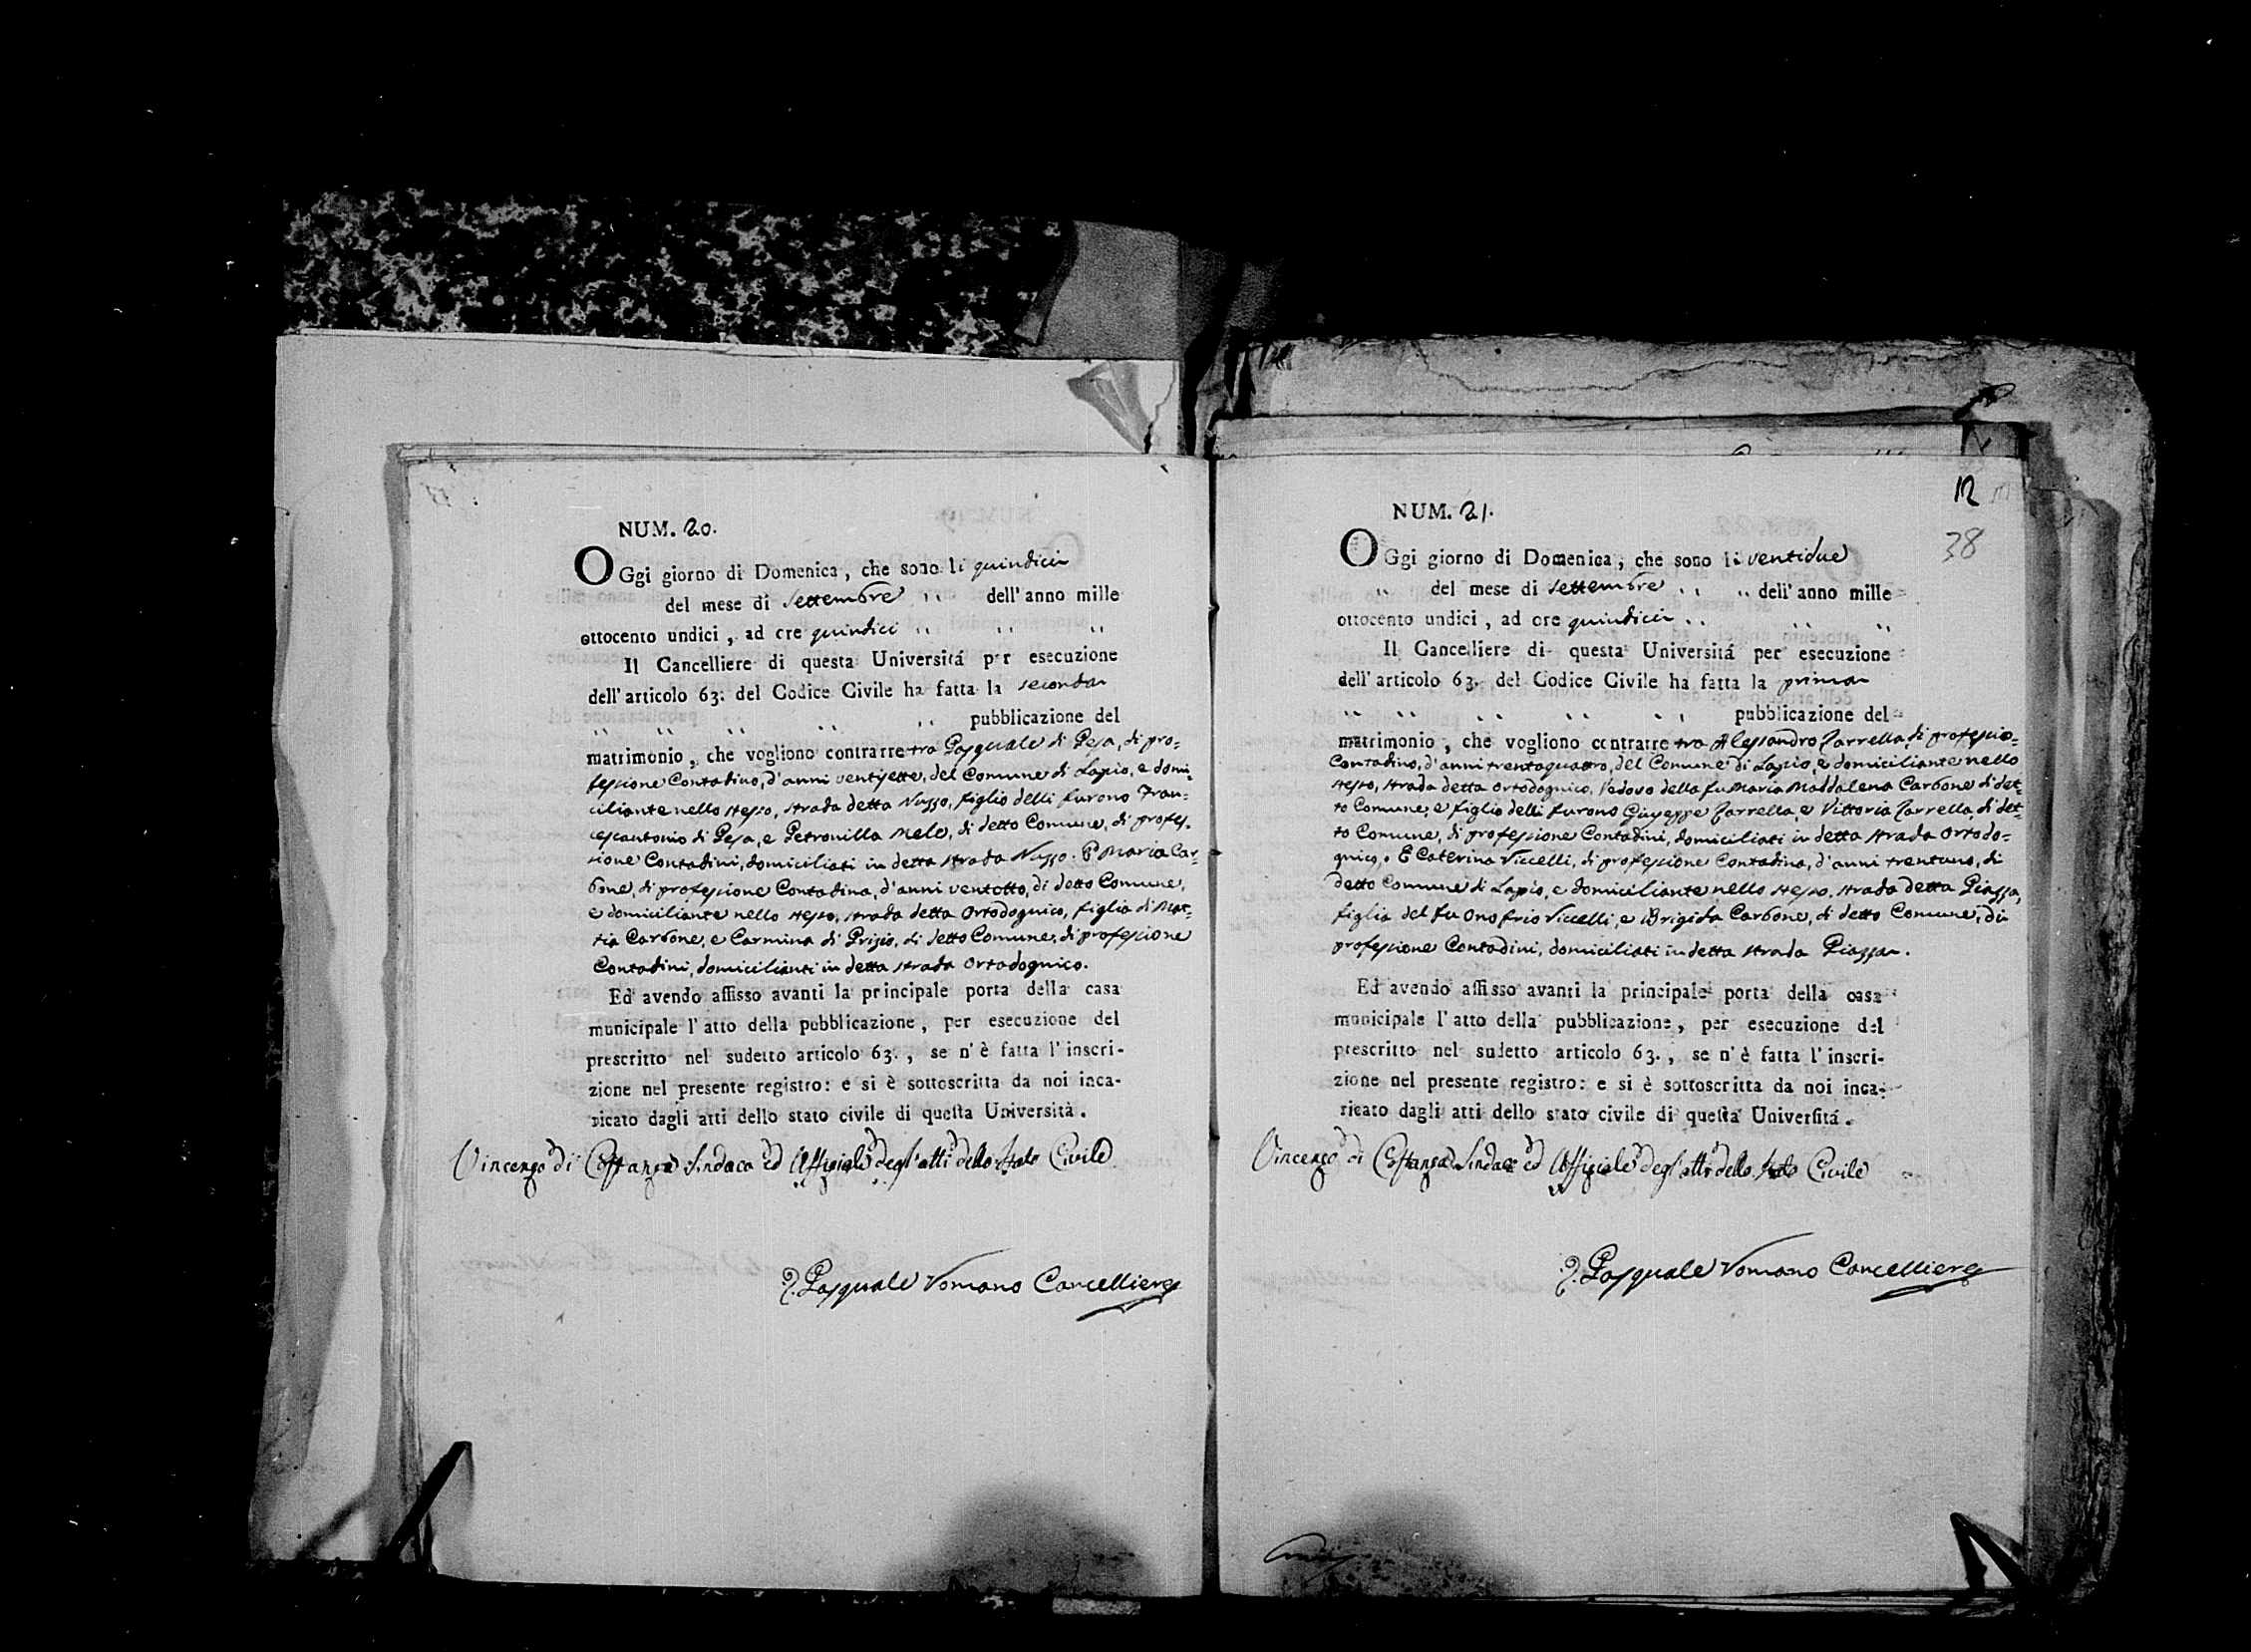 NUM. 20.
OGgi giorno di Domenica, che sono li quindici
del mese di Settembre " dell'anno mille
ottocento undici, ad ore quindici " " "
Il Cancelliere di questa Universitá per esecuzione
dell'articolo 63. del Codice Civile ha fatta la seconda
" " " " " pubblicazione del
matrimonio, che vogliono contrarre tra Pasquale di Pesa, di pro-
fessione Contadino, d'anni ventisette, del Comune di Lapio, e domi-
ciliante nello stesso, strada detta Nuzzo, figlio delli furono Fran-
cescantonio di Pesa, e Petronilla Mele, di detto Comune, di profes-
sione Contadini, domiciliati in detta strada Nuzzo. E Maria Car-
bone, di professione Contadina, d'anni ventotto, di detto Comune,
e domiciliante nello stesso, strada detta Ortodognico, figlia di Mat-
tia Carbone, e Carmina di Prizio, di detto Comune, di professione
Contadini, domicilianti in detta strada Ortodognico.
Ed avendo affisso avanti la principale porta della casa
municipale l'atto della pubblicazione, per esecuzione del
prescritto nel sudetto articolo 63., se n'è fatta l'inscri-
zione nel presente registro: e si è sottoscritta da noi inca-
ricato dagli atti dello stato civile di questa Università.
Vincenzo di Costanza Sindaco ed Uffiziale degl'atti dello Stato Civile
Pasquale Romano Cancelliere
12
38
NUM. 21.
OGgi giorno di Domenica, che sono li ventidue
" del mese di Settembre " " dell'anno mille
ottocento undici, ad ore quindici " " "
Il Cancelliere di questa Universitá per esecuzione
dell'articolo 63. del Codice Civile ha fatta la prima
" " " " " pubblicazione del
matrimonio, che vogliono contrarre tra Alessandro Zarrella, di professio-
Contadino, d'anni trentaquattro, del Comune di Lapio, e domiciliante nello
stesso, strada detta Ortodognico, Vedovo della fu Maria Maddalena Carbone di det-
to Comune, e figlio delli furono Giuseppe Zarrella, e Vittoria Zarrella, di det-
to Comune, di professione Contadini, domiciliati in detta strada Ortodo-
gnico. E Caterina Viccelli, di professione Contadina, d'anni trentuno, di
detto Comune di Lapio, e domiciliante nello stesso, strada detta Piazza,
figlia del fu Onofrio Viccelli, e Brigida Carbone, di detto Comune, di
professione Contadini, domiciliati in detta strada Piazza.
Ed avendo affisso avanti la principale porta della casa
municipale l'atto della pubblicazione, per esecuzione del
prescritto nel sudetto articolo 63., se n'è fatta l'inscri-
zione nel presente registro: e si è sottoscritta da noi inca-
ricato dagli atti dello stato civile di questa Universitá.
Vincenzo di Costanza Sindaco ed Uffiziale degl'atti dello Stato Civile
Pasquale Romano Cancelliere